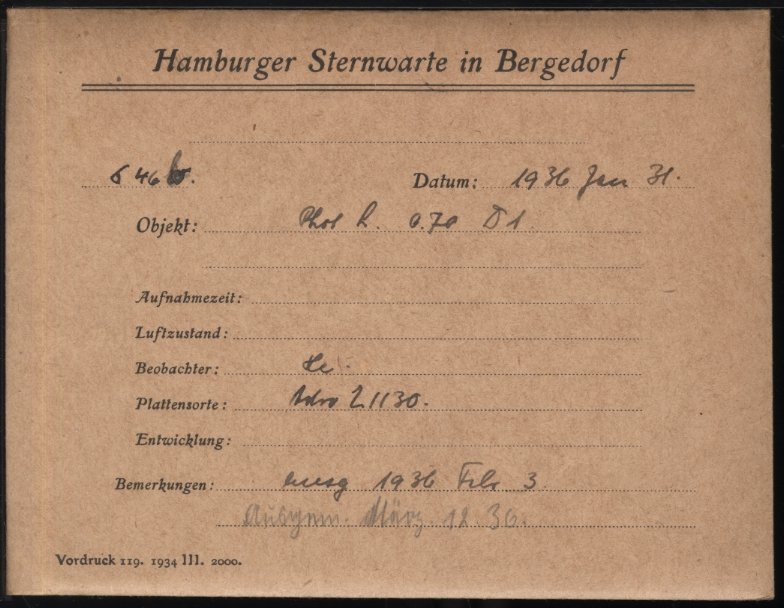 Hamburger Sternwarte in Bergedorf
Datum: 1936 Jan 31.
Objekt: Phot R. 0.70
Aufnahmezeit:
Luftzustand:
Beobachter:
Plattensorte: Z 1130.
Entwicklung:
Bemerkungen: 1936 Febr 3
Ausgem. März 12. 36.
Vordruck 119. 1934 III. 2000.